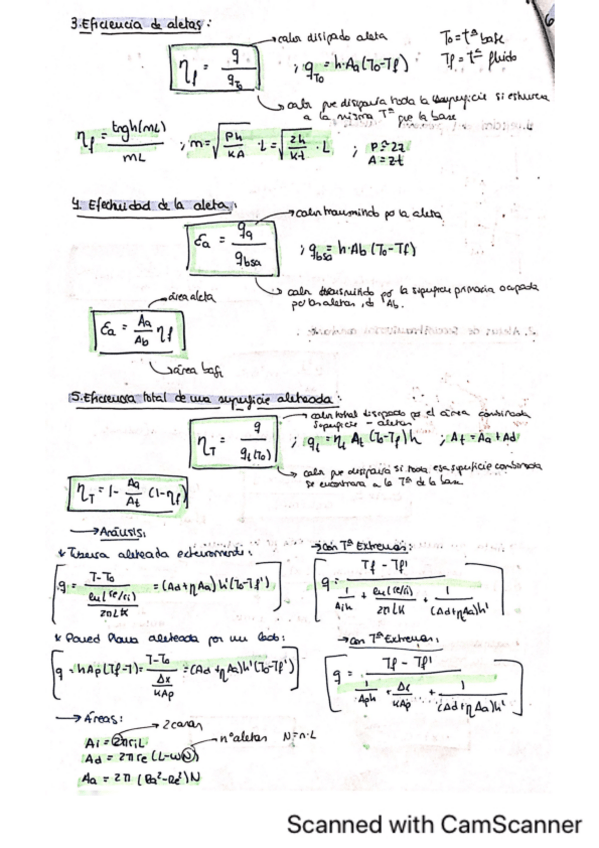 3. Eficiencia de aletas:
ηf = q / qTo ; qTo = h·Aa(To-Tf)
calor disipado aleta
To = tª base
Tf = tª fluido
calor que disiparía toda la superficie si estuviera
a la misma Tª que la base
ηf = tngh(mL) / mL ; m = √(Ph/KA) · L = √(2h/Kt) · L ; P≈2z
A = zt
4. Efectividad de la aleta:
calor transmitido por la aleta
Ɛa = qa / qbsa ; qbsa = h·Ab (To-Tf)
calor transmitido por la superficie primaria ocupada
por las aletas, Ab.
área aleta
Ɛa = Aa/Ab ηf
área base
5. Eficiencia total de una superficie aleteada:
calor total disipado por el área combinada
superficie - aletas
ηT = q / qt(To) ; qt = ηt At (To-Tf)h ; At = Aa + Ad
calor que disiparía si toda esa superficie combinada
se encontrara a la Tª de la base.
ηT = 1 - Aa/At (1-ηf)
→ Análisis:
* Tubería aleteada exteriormente:
q = (T-To) / (ln(re/ri) / 2πLK) = (Ad+ηAa)h'(To-Tf')
→ Con Tª Extremas:
q = (Tf - Tf') / (1/Aih + ln(re/ri)/2πLK + 1/(Ad+ηAa)h')
* Pared Plana aleteada por un lado:
q = hAp(Tf-T) = (T-To) / (Δx/KAp) = (Ad+ηAa)h'(To-Tf')
→ Con Tª Extremas:
q = (Tf - Tf') / (1/Aph + Δx/KAp + 1/(Ad+ηAa)h')
→ Áreas:
2 caras
Ai = 2πriL
nº aletas N=n·L
Ad = 2πre (L-wN)
Aa = 2π (Ra²-Re²)N
Scanned with CamScanner